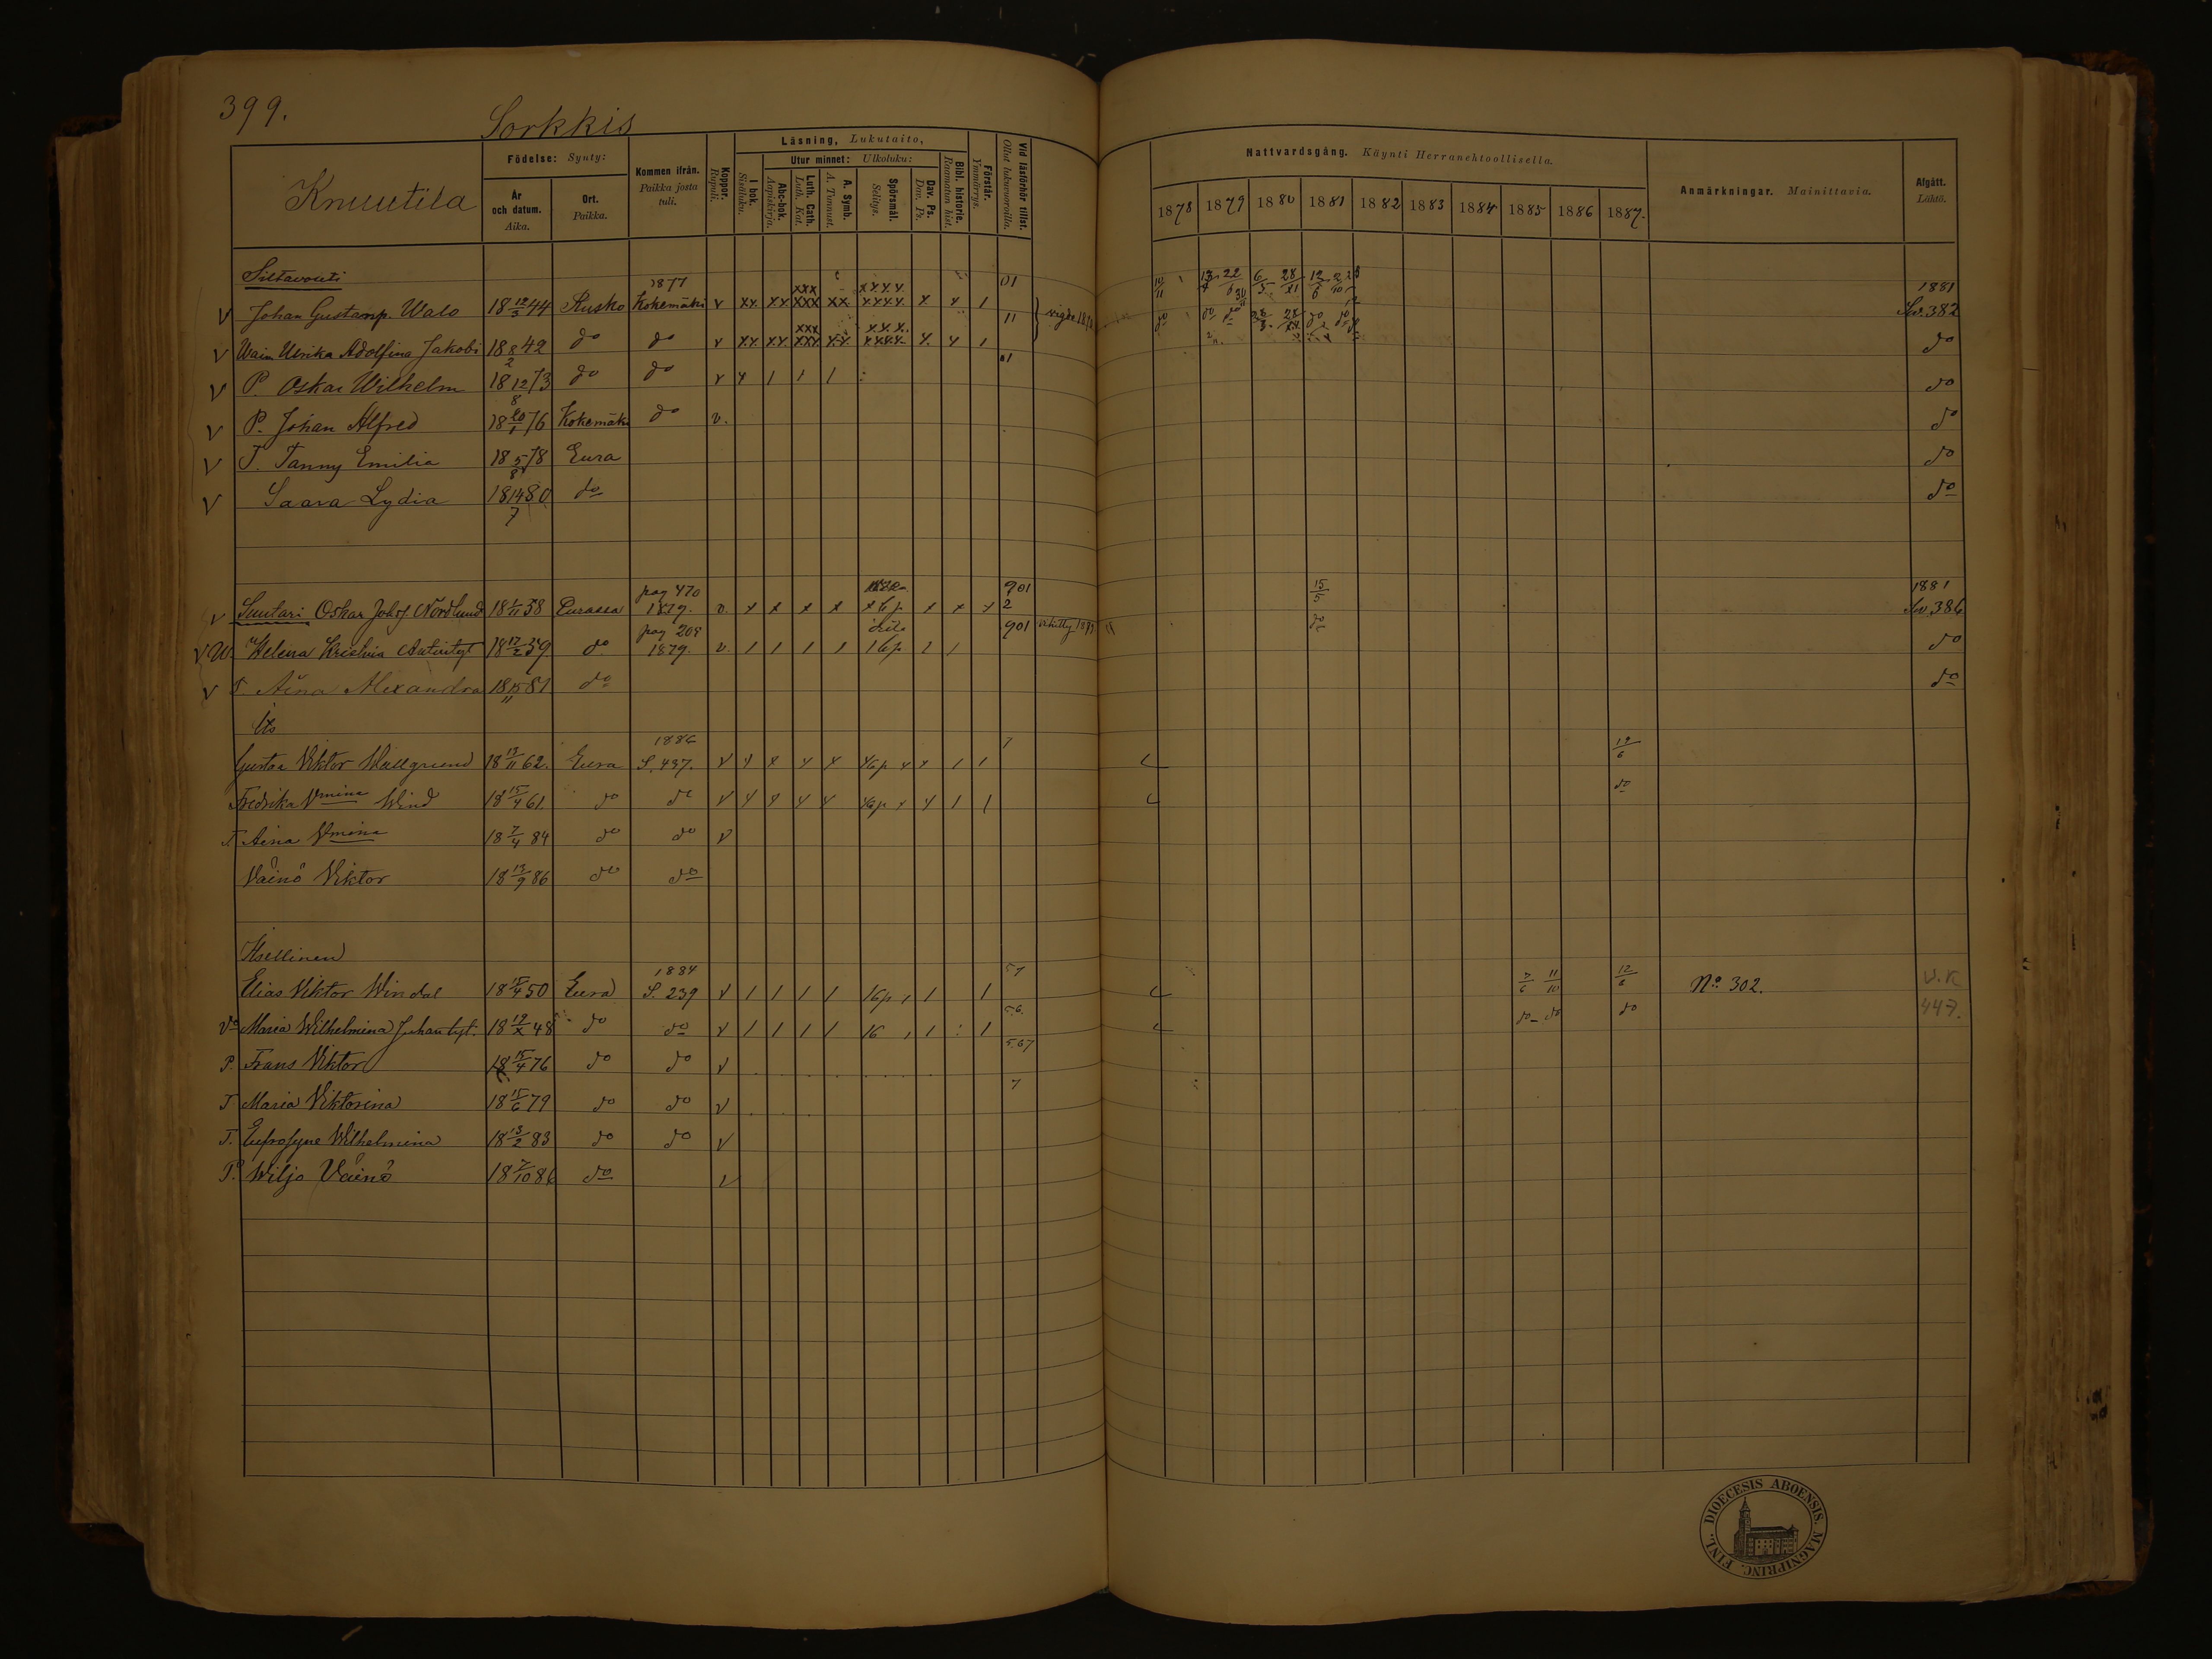 399.
Sorkkis
Knuutila
Födelse: Synty:
År och datum. Aika.
Ort. Paikka.
Kommen ifrån. Paikka josta tuli.
Koppor. Rupuli.
Läsning, Lukutaito,
I bok. Sisäluku.
Utur minnet: Ulkoluku:
Abc-bok. Aapiskirja.
Luth. Cath. Luth. Kat.
A. Symb. A. Tunnust.
Spörsmål. Selitys.
Dav. Ps. Dav. Ps.
Bibl. historie. Raamatun hist.
Förstår. Ymmärrys.
Vid läsförhör tillst. Ollut lukuvuoroilla.
Nattvardsgång. Käynti Herranehtoollisella.
1878 1879 1880 1881 1882 1883 1884 1885 1886 1887.
Anmärkningar. Mainittavia.
Afgått. Lähtö.
Siltavouti
1877 01 1881
v Johan Gustafsp. Walo 18 12/3 44 Rusko Kokemäki v xx xx xxx xx xxxx x x 1 Siv. 382
v Waim. Ulrika Adolfina Jakobi 18 8/2 42 do do v xx xx xxx xx xxxx x x 1 do
v P. Oskar Wilhelm 18 12/8 73 do do v x 1 1 1 do
v P. Johan Alfred 18 20/1 76 Kokemäki do v. do
v T. Fanny Emilia 18 5/8 78 Eura do
v Saara Lydia 18 14/7 80 do do
pag 470 901 15/5 1881
v Suutari Oskar Johsf. Nordlund 18 1/11 58 Eurassa 1879. v. x x x x x6p x x x 2 Siv. 386
pag 208 901 vihitty 1879 do
v W. Helena Kristiina Antintyt 18 17/2 59 do 1879. v. 1 1 1 1 16p 1 1 do
v T Aina Alexandra 18 15/11 81 do do
Its
1886 7 19/6
Gustaa Viktor Wallgrund 18 13/11 62. Eura S. 437.
Fredrika Vmina Wind 18 15/4 61. do do do
T. Aina Vmina 18 7/4 84 do do v
Väinö Viktor 18 13/9 86 do do
Itsellinen
1884 57
Elias Viktor Windal 18 15/4 50 Eura S. 239 v 1 1 1 1 16p 1 1 7/6 11/10 12/6 No. 302. U.K
Vo Maria Wilhelmina Juhantyt. 18 19/x 48 do do v 1 1 1 1 16 1 1 56. do do do 447.
P. Frans Viktor 18 15/4 76 do do v 5.67
T Maria Viktorina 18 15/6 79 do do v 7
T. Eufrosyne Wilhelmina 18 13/2 83 do do v
P. Wiljo Väinö 18 7/10 86 do v
DIOECESIS ABOENSIS. MAGNIPRINC. FINL.